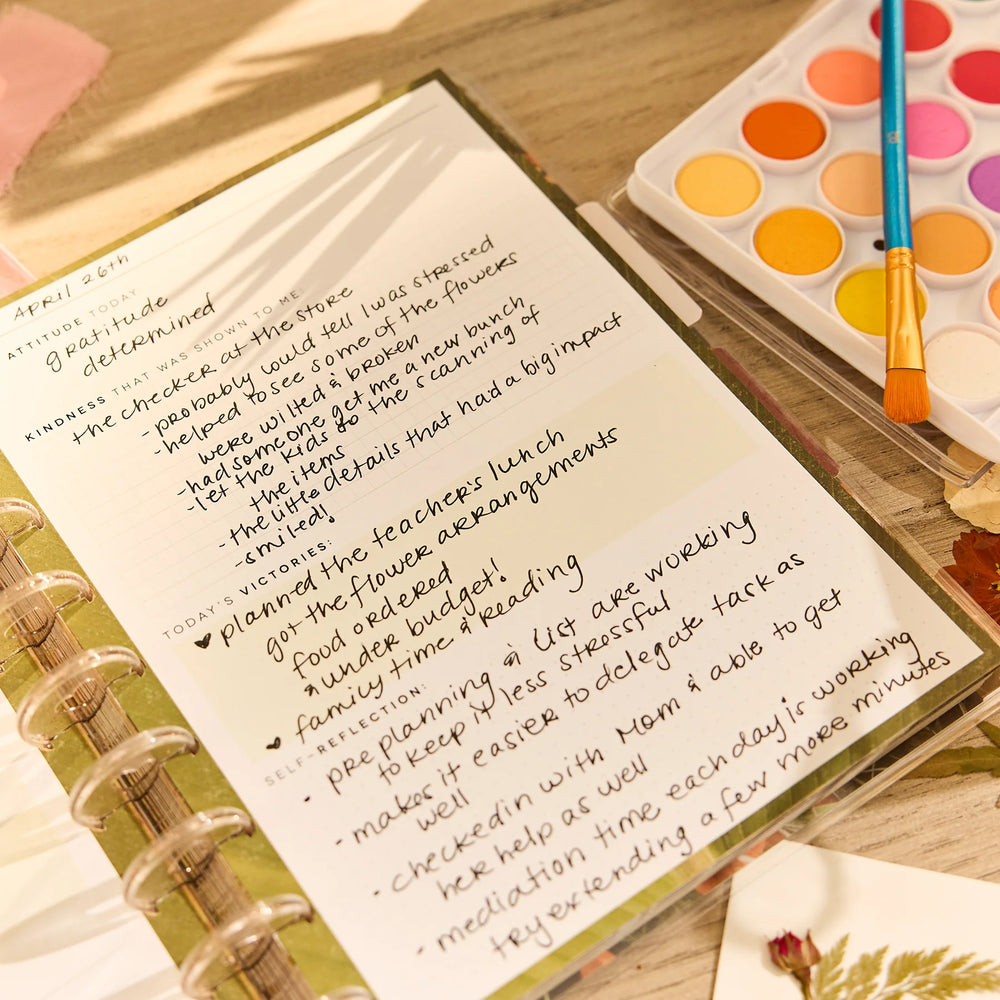 APRIL 26th
ATTITUDE TODAY
gratitude
determined
KINDNESS THAT WAS SHOWN TO ME:
the checker at the store
- probably would tell I was stressed
- helped to see some of the flowers
were wilted & broken
- had someone get me a new bunch
- let the kids do the scanning of
the items
- the little details that had a big impact
- smiled!
TODAY'S VICTORIES:
♥ planned the teacher's lunch
got the flower arrangements
food ordered
& under budget!
♥ family time & reading
SELF-REFLECTION:
• pre planning & list are working
to keep it less strossful
• makes it easier to delegate task as
well
• checked in with Mom & able to get
her help as well
• mediation time each day is working
try extending a few more minutes